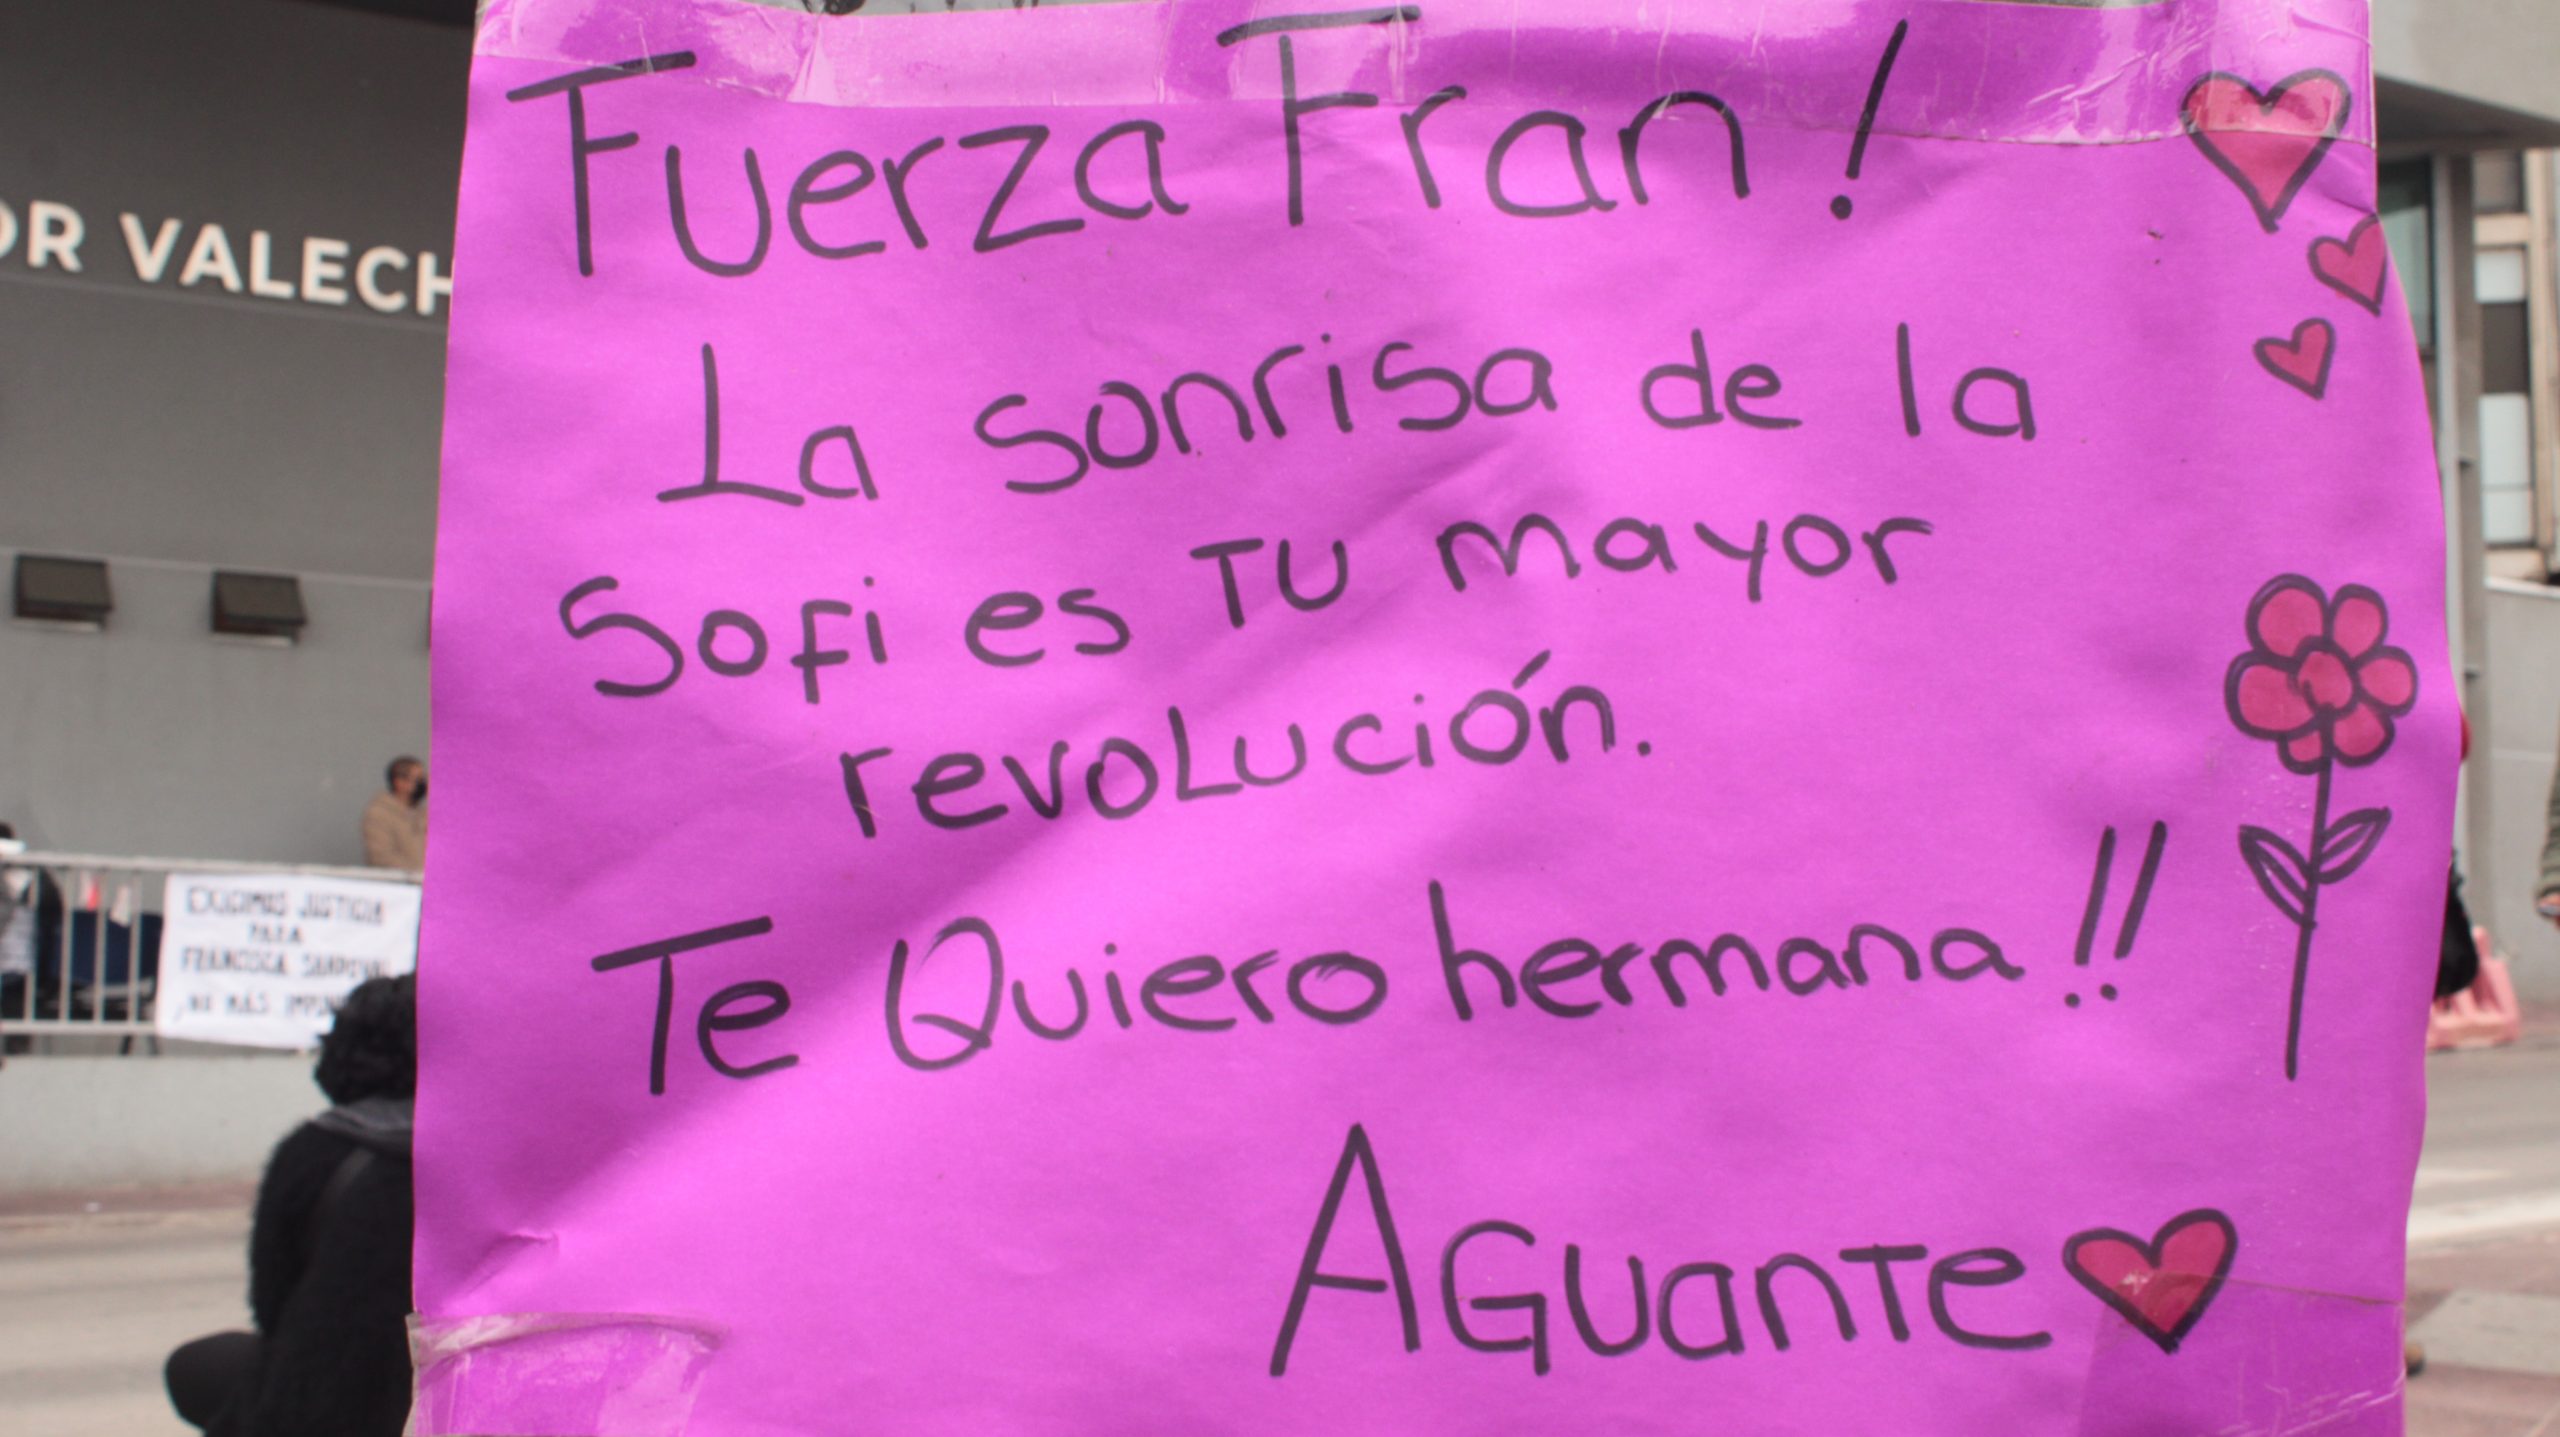 Fuerza Fran!
La sonrisa de la
Sofi es TU mayor
revoLución.
Te Quiero hermana!!
AGUanTe
OR VALECH
EXIGIMOS JUSTICIA
PARA
FRANCISCA SANDOVAL
MÁS